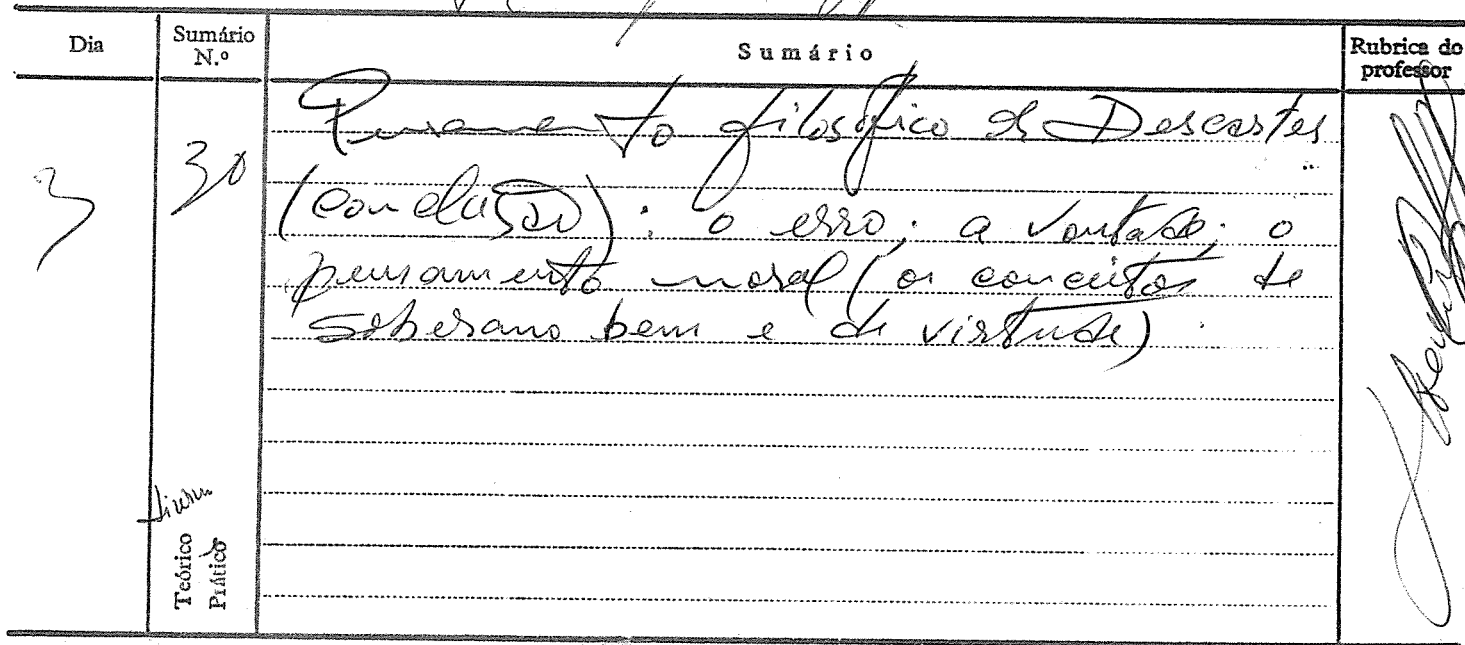 Dia
Sumário
N.º
Sumário
Rubrica do
professor
3
30
Pensamento filosófico de Descartes
(conclusão): o erro; a vontade; o
pensamento moral (os conceitos de
soberano bem e de virtude).
Teórico
Prático